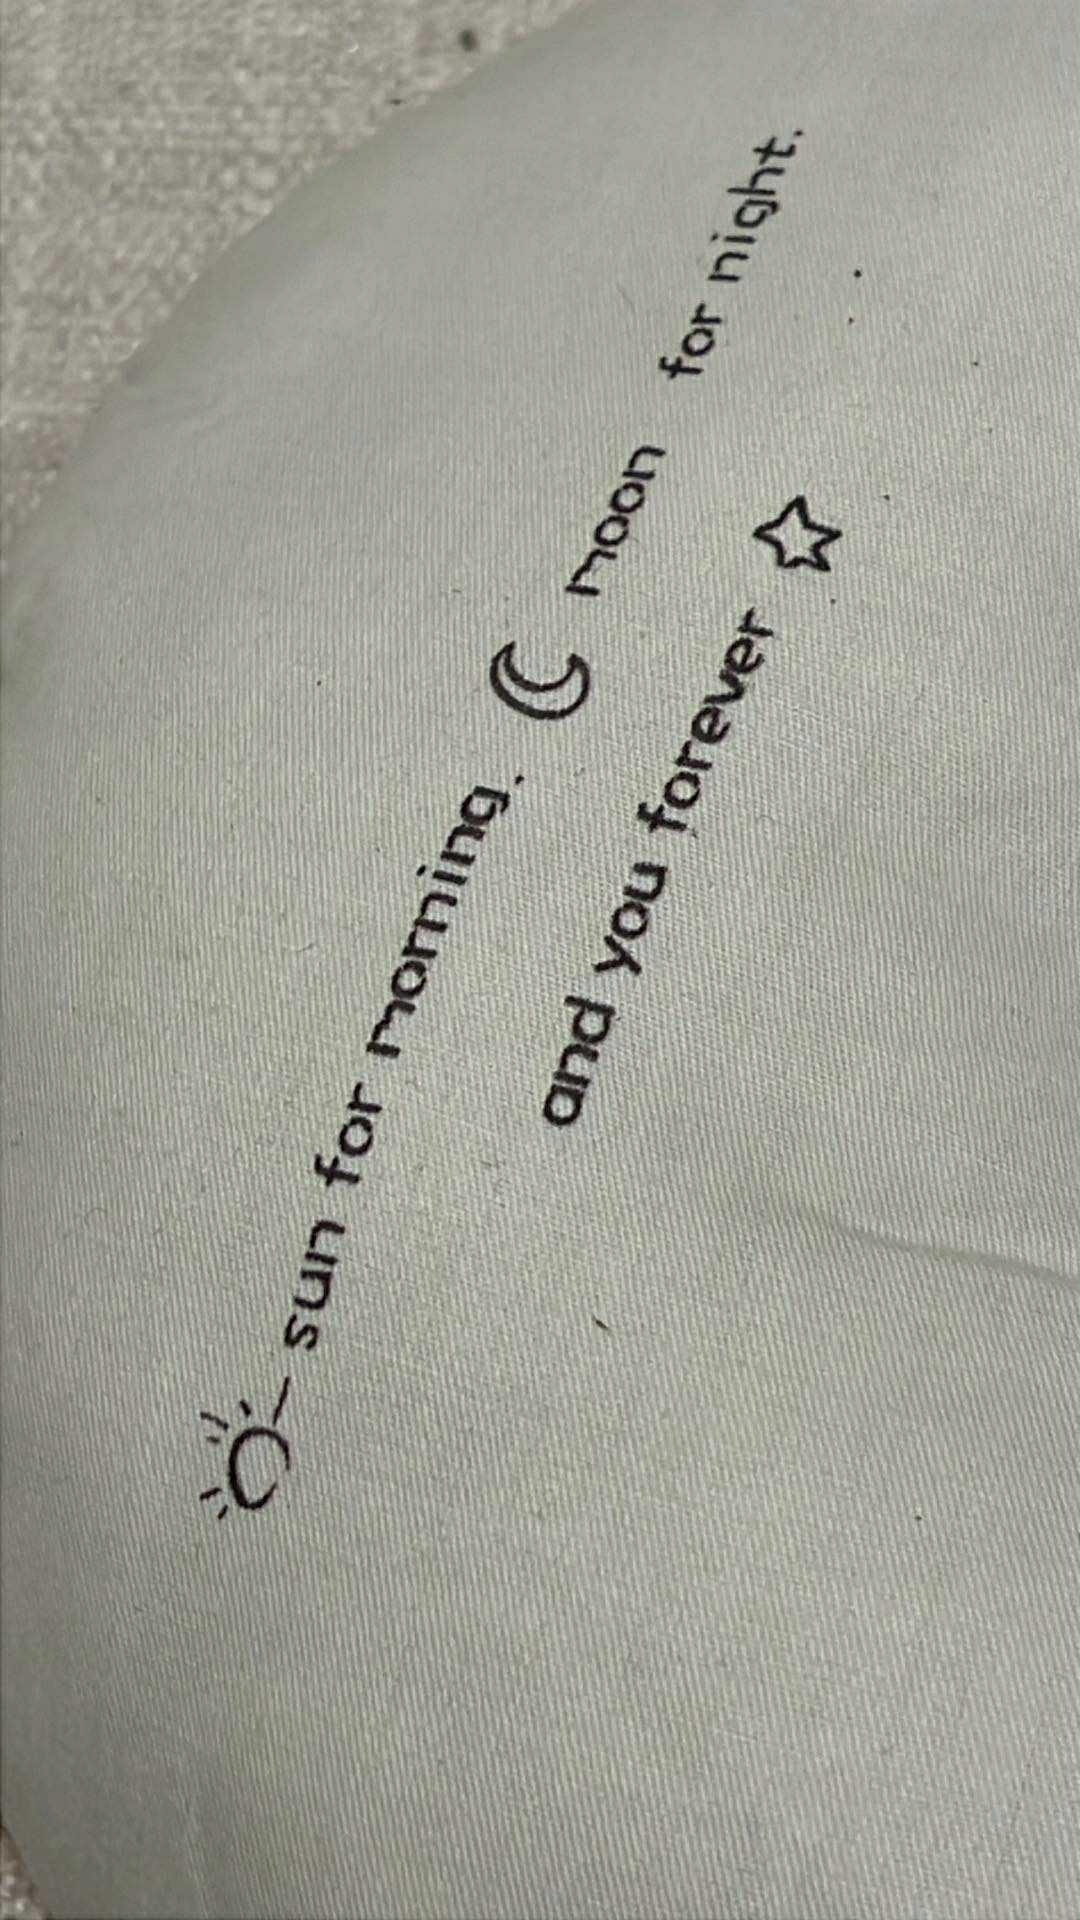 sun for morning. moon for night.
and you forever